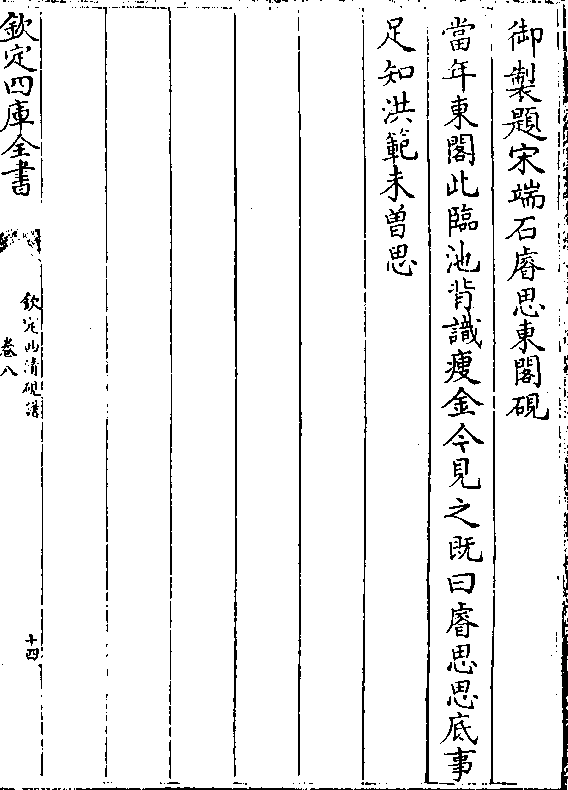 御製題宋端石睿思東閣硯
當年東閣此臨池背識瘦金今見之既曰睿思思底事
足知洪範未曽思
欽定四庫全書
欽定西清硯譜
卷八
十四